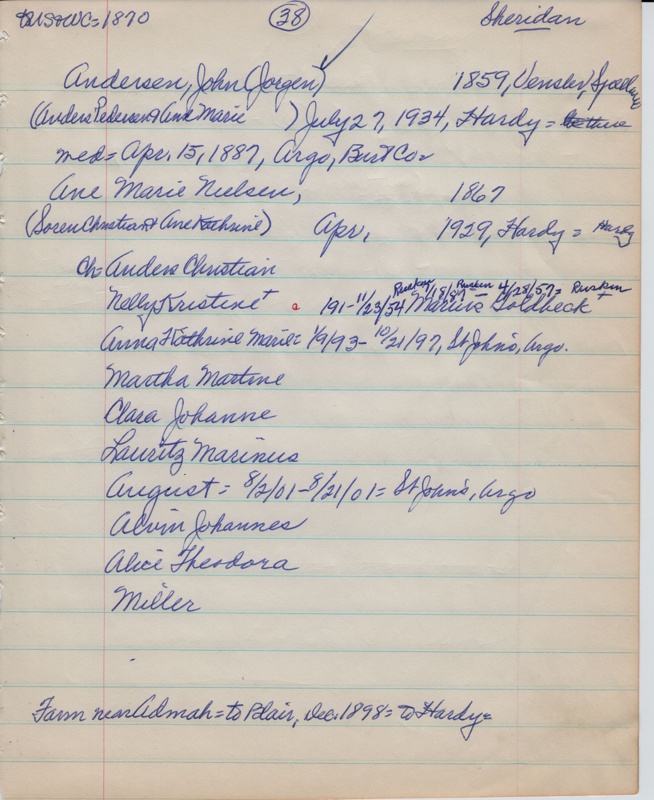 to US & WC = 1870 (38) Sheridan
Andersen, John (Jorgen) 1859, Venslev,
(Anders Pedersen & Ane Marie ) July 27, 1934, Hardy =
med = Apr. 15, 1887, Argo, Burt Co
Ane Marie Nielsen, 1867
(Soren Christian & Ane Kathrine) Apr, 1929, Hardy = Hardy
Ruskin, 9/8/87 - Ruskin 4/28/57 = Ruskin
Ch = Anders Christian
Nelly Kristine + 191 - 11/23/54 Marius Goldbeck +
Anna Kathrine Marie = 1/9/93 - 10/21/97, St John's, Argo.
Martha Martine
Clara Johanne
Lauritz Marinus
August = 8/2/01 - 8/21/01 = St John's, Argo
Alvin Johannes
Alice Theodora
Miller
Farm near Admah = to Blair, Dec. 1898 = to Hardy =